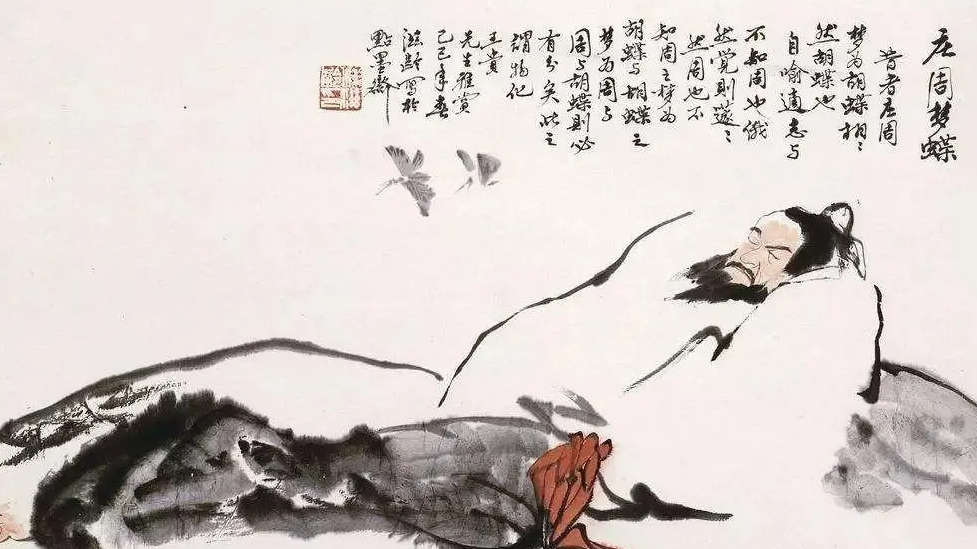 庄周梦蝶
昔者庄周
梦为胡蝶栩〻
然胡蝶也
自喻適志与
不知周也俄
然覺則蘧〻
然周也不
知周之梦为
胡蝶与胡蝶之
梦为周与
周与胡蝶則必
有分矣此之
謂物化
王貴
先生雅赏
己巳年春
滋齡寫於
點墨齋